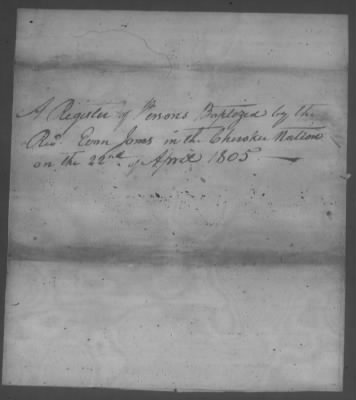 A Register of Persons Baptozed by the
Revd Evan Jones in the Cherokee Nation
on the 22nd of April 1805